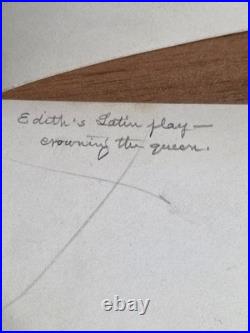 Edith's Latin play—
crowning the queen.
© ebay